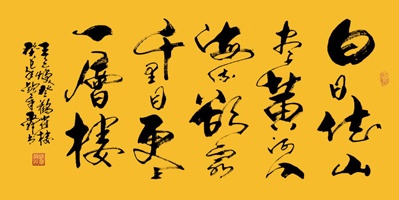 白日依山
尽黄河入
海流欲穷
千里目更上
一層楼
王之涣登鹳雀楼